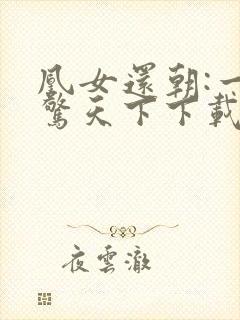 鳳女還朝:一
驚天下下載
夜雲澈